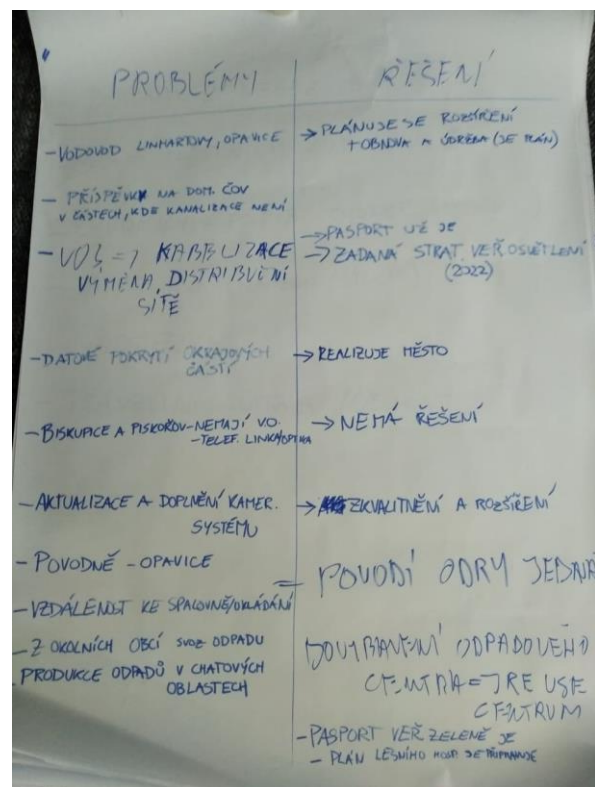 PROBLÉMY
- VODOVOD LINHARTOVY, OPAVICE
- PŘÍSPĚVKY NA DOM. ČOV
V ČÁSTECH, KDE KANALIZACE NENÍ
- VOŠ => KABELIZACE
VÝMĚNA DISTRIBUČNÍ
SÍTĚ
- DATOVÉ POKRYTÍ OKRAJOVÝCH
ČÁSTÍ
- BISKUPICE A PISKOŘOV - NEMAJÍ VO.
- TELEF. LINKA/OPTIKA
- AKTUALIZACE A DOPLNĚNÍ KAMER.
SYSTÉMU
- POVODNĚ - OPAVICE
- VZDÁLENOST KE SPALOVNĚ/UKLÁDÁNÍ
- Z OKOLNÍCH OBCÍ SVOZ ODPADU
PRODUKCE ODPADŮ V CHATOVÝCH
OBLASTECH
ŘEŠENÍ
→ PLÁNUJE SE ROZŠÍŘENÍ
+ OBNOVA A ÚDRŽBA (JE PLÁN)
→ PASPORT UŽ JE
→ ZADANÁ STRAT. VEŘ OSVĚTLENÍ
(2022)
→ REALIZUJE MĚSTO
→ NEMÁ ŘEŠENÍ
→ ZKVALITNĚNÍ A ROZŠÍŘENÍ
= POVODÍ ODRY JEDNÁ
DOVYBAVENÍ ODPADOVÉHO
CENTRA => RE USE
CENTRUM
- PASPORT VEŘ ZELENĚ JE
- PLÁN LESNÍHO HOSP. SE PŘIPRAVUJE